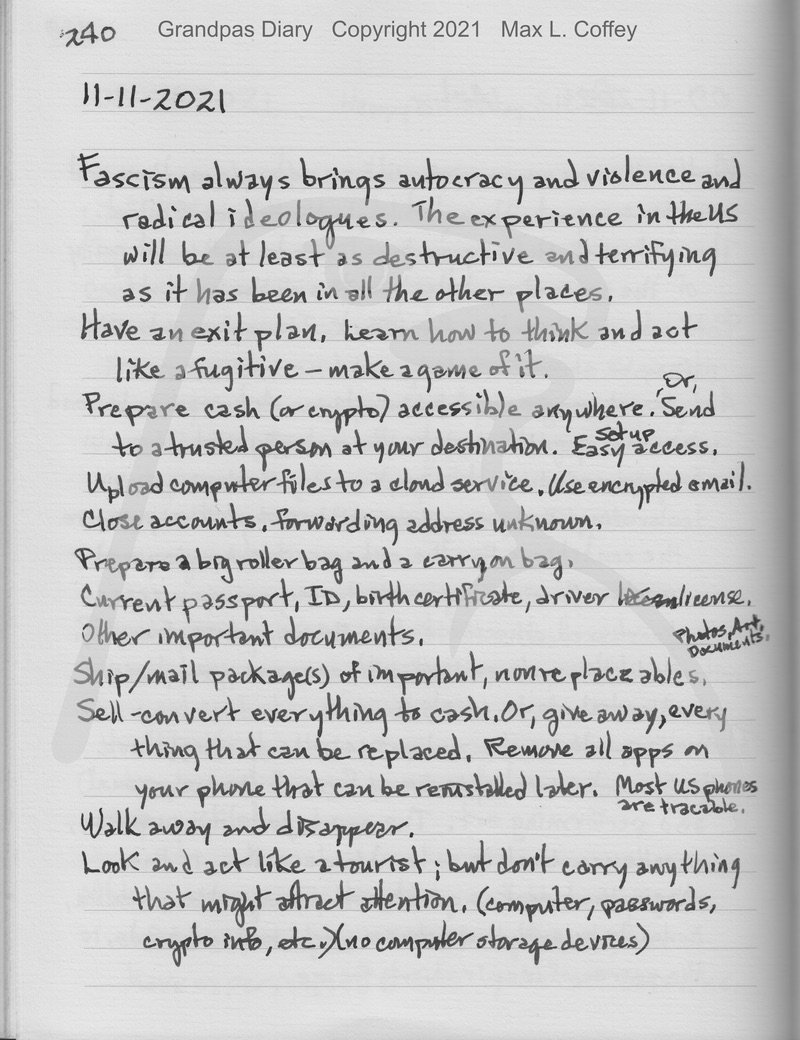 240
Grandpas Diary Copyright 2021 Max L. Coffey
11-11-2021
Fascism always brings autocracy and violence and
radical ideologues. The experience in the US
will be at least as destructive and terrifying
as it has been in all the other places.
Have an exit plan. Learn how to think and act
like a fugitive – make a game of it.
Or,
Prepare cash (or crypto) accessible anywhere. Send
to a trusted person at your destination. Easy access.
Set up
Upload computer files to a cloud service. Use encrypted email.
Close accounts. forwarding address unknown.
Prepare a big roller bag and a carry on bag.
Current passport, ID, birth certificate, driver license.
Other important documents.
Photos, Art,
Documents.
Ship/mail package(s) of important, nonreplaceables.
Sell-convert everything to cash. Or, give away, every
thing that can be replaced. Remove all apps on
your phone that can be reinstalled later. Most US phones
are tracable.
Walk away and disappear.
Look and act like a tourist; but don't carry anything
that might attract attention. (computer, passwords,
crypto info, etc.) (no computer storage devices)